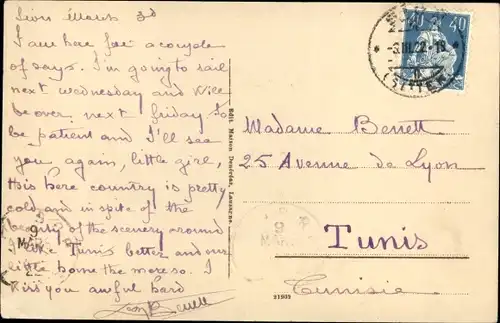 Sion March 3d
I am here for a couple
of days. I'm going to sail
next wednesday and will
be over next friday. So
be patient and I'll see
you again, little girl,
this here country is pretty
cold and in spite of the
beauty of the scenery around
I like Tunis better and our
little home the more so. I
kiss you awful hard
Edit. Maison Lausanne.
21952
40 40
-3.III.22.-18
(SITTEN)
Madame Benett
25 Avenue de Lyon
Tunis
Tunisie